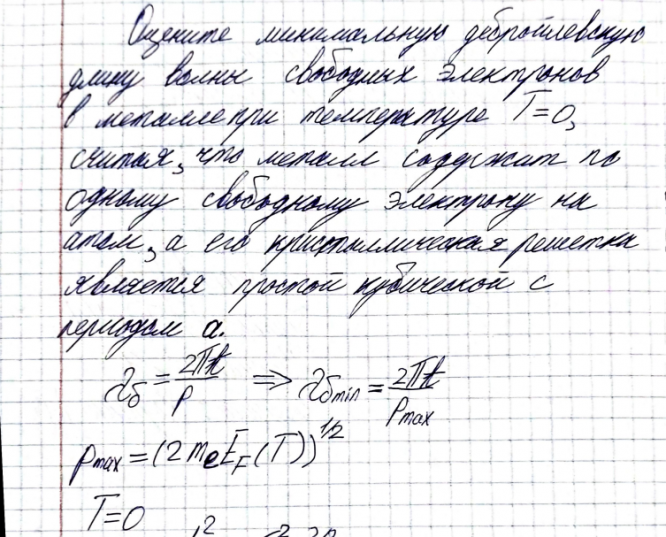 Оцените минимальную дебройлевскую
длину волны свободных электронов
в металле при температуре T=0,
считая, что металл содержит по
одному свободному электрону на
атом, а его кристаллическая решетка
является простой кубической с
периодом a.
λ_б = 2πħ/p ⇒ λ_бmin = 2πħ/p_max
p_max = (2 m_e E_F(T))^1/2
T=0